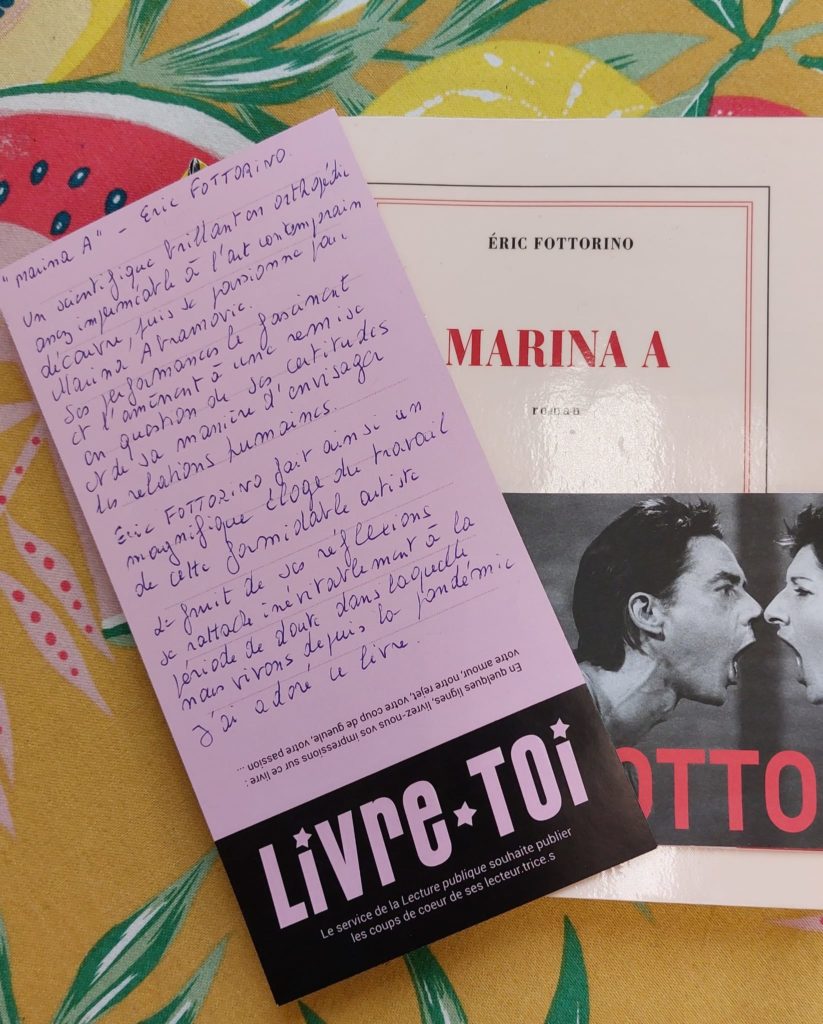 "Marina A" - Eric FOTTORINO.
Un scientifique brillant en orthopédie
assez imperméable à l'art contemporain
découvre, puis se passionne pour
Marina Abramovic.
Ses performances le fascinent
et l'amènent à une remise
en question de ses certitudes
et de sa manière d'envisager
les relations humaines.
Eric FOTTORINO fait ainsi un
magnifique éloge du travail
de cette formidable artiste
Le fruit de ses réflexions
se rattache inévitablement à la
période de doute dans laquelle
nous vivons depuis la pandémie
J'ai adoré ce livre.
En quelques lignes, livrez-nous vos impressions sur ce livre :
votre amour, notre rejet, votre coup de gueule, votre passion ...
LIVRE TOI
Le service de la Lecture publique souhaite publier
les coups de coeur de ses lecteur.trice.s
ÉRIC FOTTORINO
MARINA A
roman
OTTO